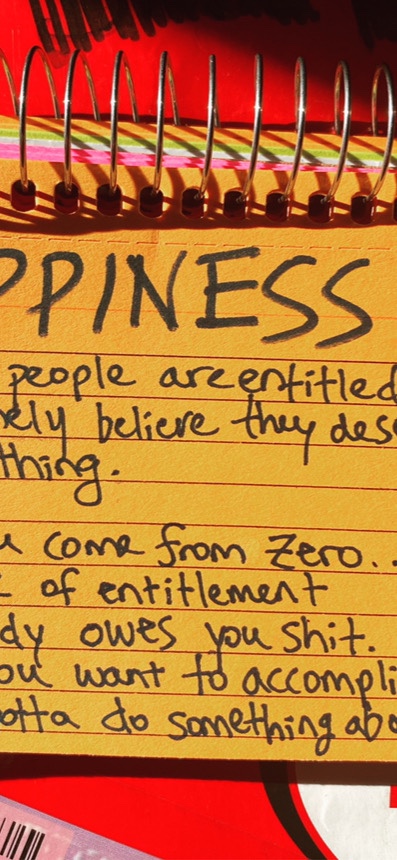 PPINESS
people are entitled
ely believe they des
thing.
u come from Zero..
of entitlement
dy owes you shit.
ou want to accompli
otta do something abo